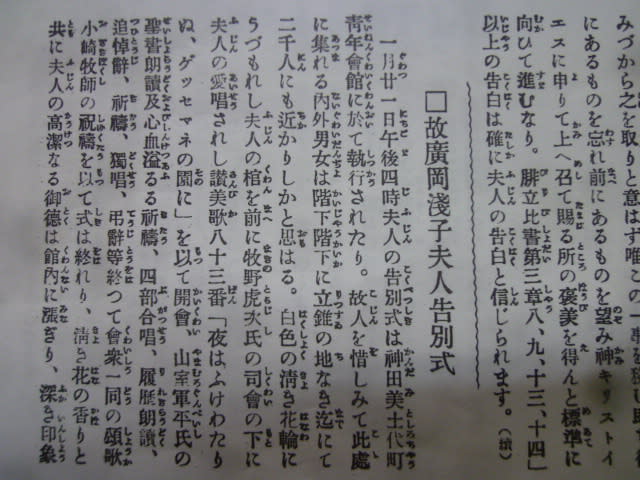 みづから之を取りと意はず唯この一事を
にあるものを忘れ前にあるものを望み神キリストイ
エスに由りて上へ召て賜る所の褒美を得んと標準に
向ひて進むなり。腓立比書第三章八、九、十三、十四」
以上の告白は確に夫人の告白と信じられます。
□故廣岡淺子夫人告別式
一月廿一日午後四時夫人の告別式は神田美土代町
靑年會館に於て執行されたり。故人を惜しみて此處
に集れる內外男女は階下階下に立錐の地なき迄にて
二千人にも近かりしかと思はる。白色の淸き花輪に
うづもれし夫人の棺を前に牧野虎次氏の司會の下に
夫人の愛唱されし讃美歌八十三番「夜はふけわたり
ぬ、ゲッセマネの園に」を以て開會、山室軍平氏の
聖書朗讀及心血溢るる祈禱、四部合唱、履歷朗讀、
追悼辭、祈禱、獨唱、弔辭等終つて會衆一同の頌歌
小崎牧師の祝禱を以て式は終れり、淸き花の香りと
共に夫人の高潔なる御德は館內に漲ぎり、深き印象